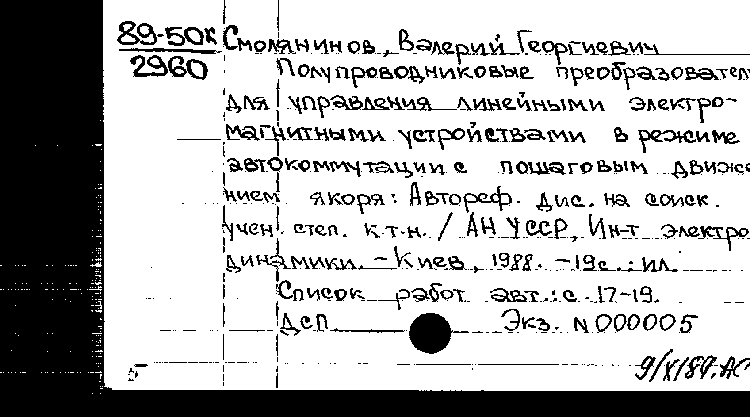 89-50к Смолянинов, Валерий Георгиевич
2960 Полупроводниковые преобразовател
для управления линейными электро-
магнитными устройствами в режиме
автокоммутации с пошаговым движе
нием якоря: Автореф. дис. на соиск.
учен. степ. к.т.н. / АН УССР, Ин-т электро
динамики. - Киев, 1988. - 19с.: ил.
Список работ авт.: с. 17-19.
ДСП Экз. N 000005
5 9/X/89. АС